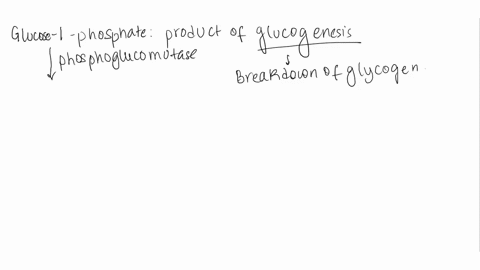 Glucose-1-phosphate: product of glucogenesis
phosphoglucomutase
Breakdown of glycogen